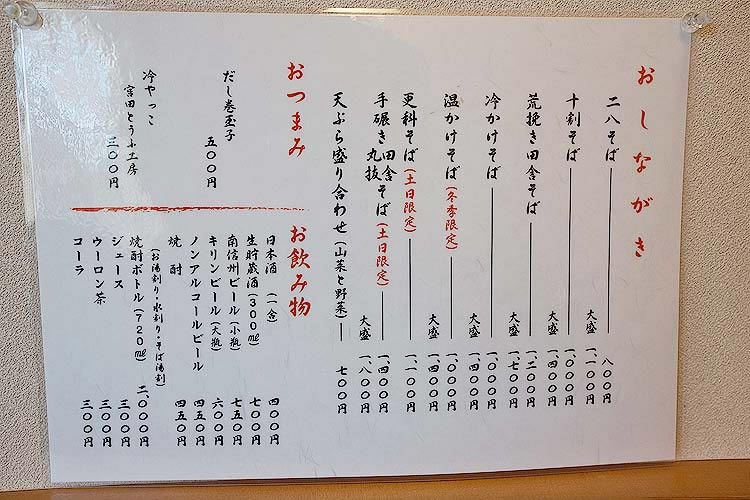 おしながき
二八そば 八〇〇円
大盛 一、一〇〇円
十割そば 一、〇〇〇円
大盛 一、四〇〇円
荒挽き田舎そば 一、二〇〇円
大盛 一、七〇〇円
冷かけそば 一、〇〇〇円
大盛 一、四〇〇円
温かけそば(冬季限定) 一、〇〇〇円
大盛 一、四〇〇円
更科そば(土日限定) 一、一〇〇円
手碾き田舎丸抜そば(土日限定) 一、四〇〇円
大盛 一、八〇〇円
天ぷら盛り合わせ(山菜と野菜) 七〇〇円
おつまみ
だし巻玉子
五〇〇円
冷やっこ
宮田とうふ工房
三〇〇円
お飲み物
日本酒(一合) 四〇〇円
生貯蔵酒(300㎖) 七〇〇円
南信州ビール(小瓶) 七五〇円
キリンビール(大瓶) 六〇〇円
ノンアルコールビール 四五〇円
焼酎 四五〇円
(お湯割り・水割り・そば湯割)
焼酎ボトル(720㎖) 二、〇〇〇円
ジュース 三〇〇円
ウーロン茶 三〇〇円
コーラ 三〇〇円